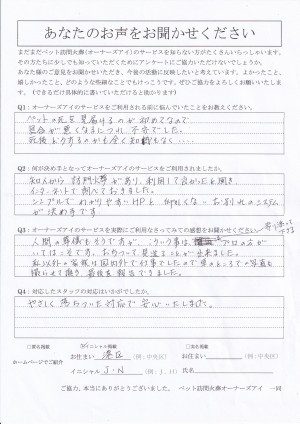 あなたのお声をお聞かせください
まだまだペット訪問火葬(オーナーズアイ)のサービスを知らない方がたくさんいらっしゃいます。
その方たちに少しでも知っていただくためにアンケートにご協力いただけないでしょうか。
あなた様のご意見をお聞かせいただき、今後の活動に反映したいと考えています。よかったこと、
嬉しかったこと、どのような些細なことでもけっこうです。ぜひご協力をよろしくお願いいたしま
す。(できるだけ具体的に書いていただけると助かります)
Q1:オーナーズアイのサービスをご利用される前に悩んでいたことをお教えください。
ペットの死を見届けるのが初めてなので
具合が悪くなるにつれ、不安でした。
死後どうするのかも全く知識もなく・・・・
Q2:何が決め手となってオーナーズアイのサービスをご利用されましたか。
知人から訪問火葬があり、利用して良かったと聞き、
インターネットで調べておきました。
シンプルでわかりやすいHPと
が決め手です
Q3:オーナーズアイのサービスを実際にご利用なさってみての感想をお聞かせください。
人間の葬儀もそうですが、こういう事はプロの方が
いては、
私以外の家族は国内外で仕事でしたので
最後を報告できました。
Q4:対応したスタッフの対応はいかがでしたか。
やさしく落ちついた対応で安心いたしました。
ホームページでご紹介
□匿名掲載
イニシャル掲載
□実名掲載
お住まい 港区 (例:中央区)
お住まい (例:中央区)
イニシャル J・N (例:J.H)
氏名
ご協力、本当にありがとうございました。 ペット訪問火葬オーナーズアイ 一同